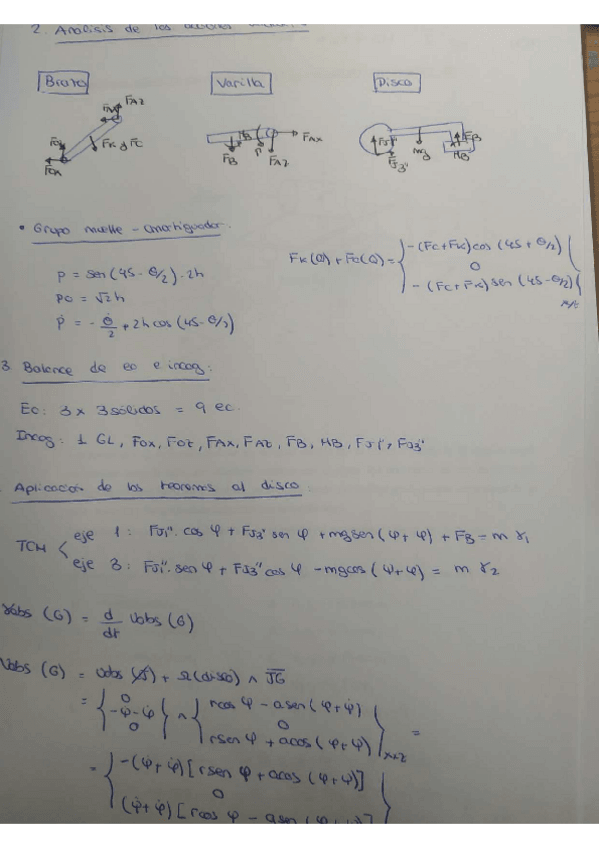 2. Análisis de las
Brazo Varilla Disco
FAZ
FK y FC
FOX
FB FAZ FAX
mg FB MB FJ3"
• Grupo muelle - amortiguador.
P = sen (45 - θ/2) · 2h
PO = √2 h
Ṗ = - θ̇/2 + 2h cos (45 - θ/2)
FK(Q) + FC(Q) = { -(FC+FK) cos (45 + θ/2)
0
- (FC+FK) sen (45 - θ/2) }
3 Balance de ec e incog:
Ec: 3 x 3 sólidos = 9 ec.
Incog: 1 GL, FOX, FOZ, FAX, FAZ, FB, MB, FJ1", FJ3"
Aplicación de los teoremas al disco:
TCM
eje 1: FJ1" · cos φ + FJ3" sen φ + mg sen (ψ + φ) + FB = m γ1
eje 3: FJ1" · sen φ + FJ3" cos φ - mg cos (ψ+φ) = m γ2
γabs (G) = d/dt Vabs (G)
Vabs (G) = Vabs (J) + Ω(disco) ∧ JG
= { 0 -φ̇-ψ̇ 0 } ∧ { r cos φ - a sen (φ+ψ) 0 r sen φ + a cos (φ+ψ) } =
= { -(φ̇+ψ̇) [r sen φ + a cos (φ+ψ)]
0
(φ̇+ψ̇) [r cos φ - a sen